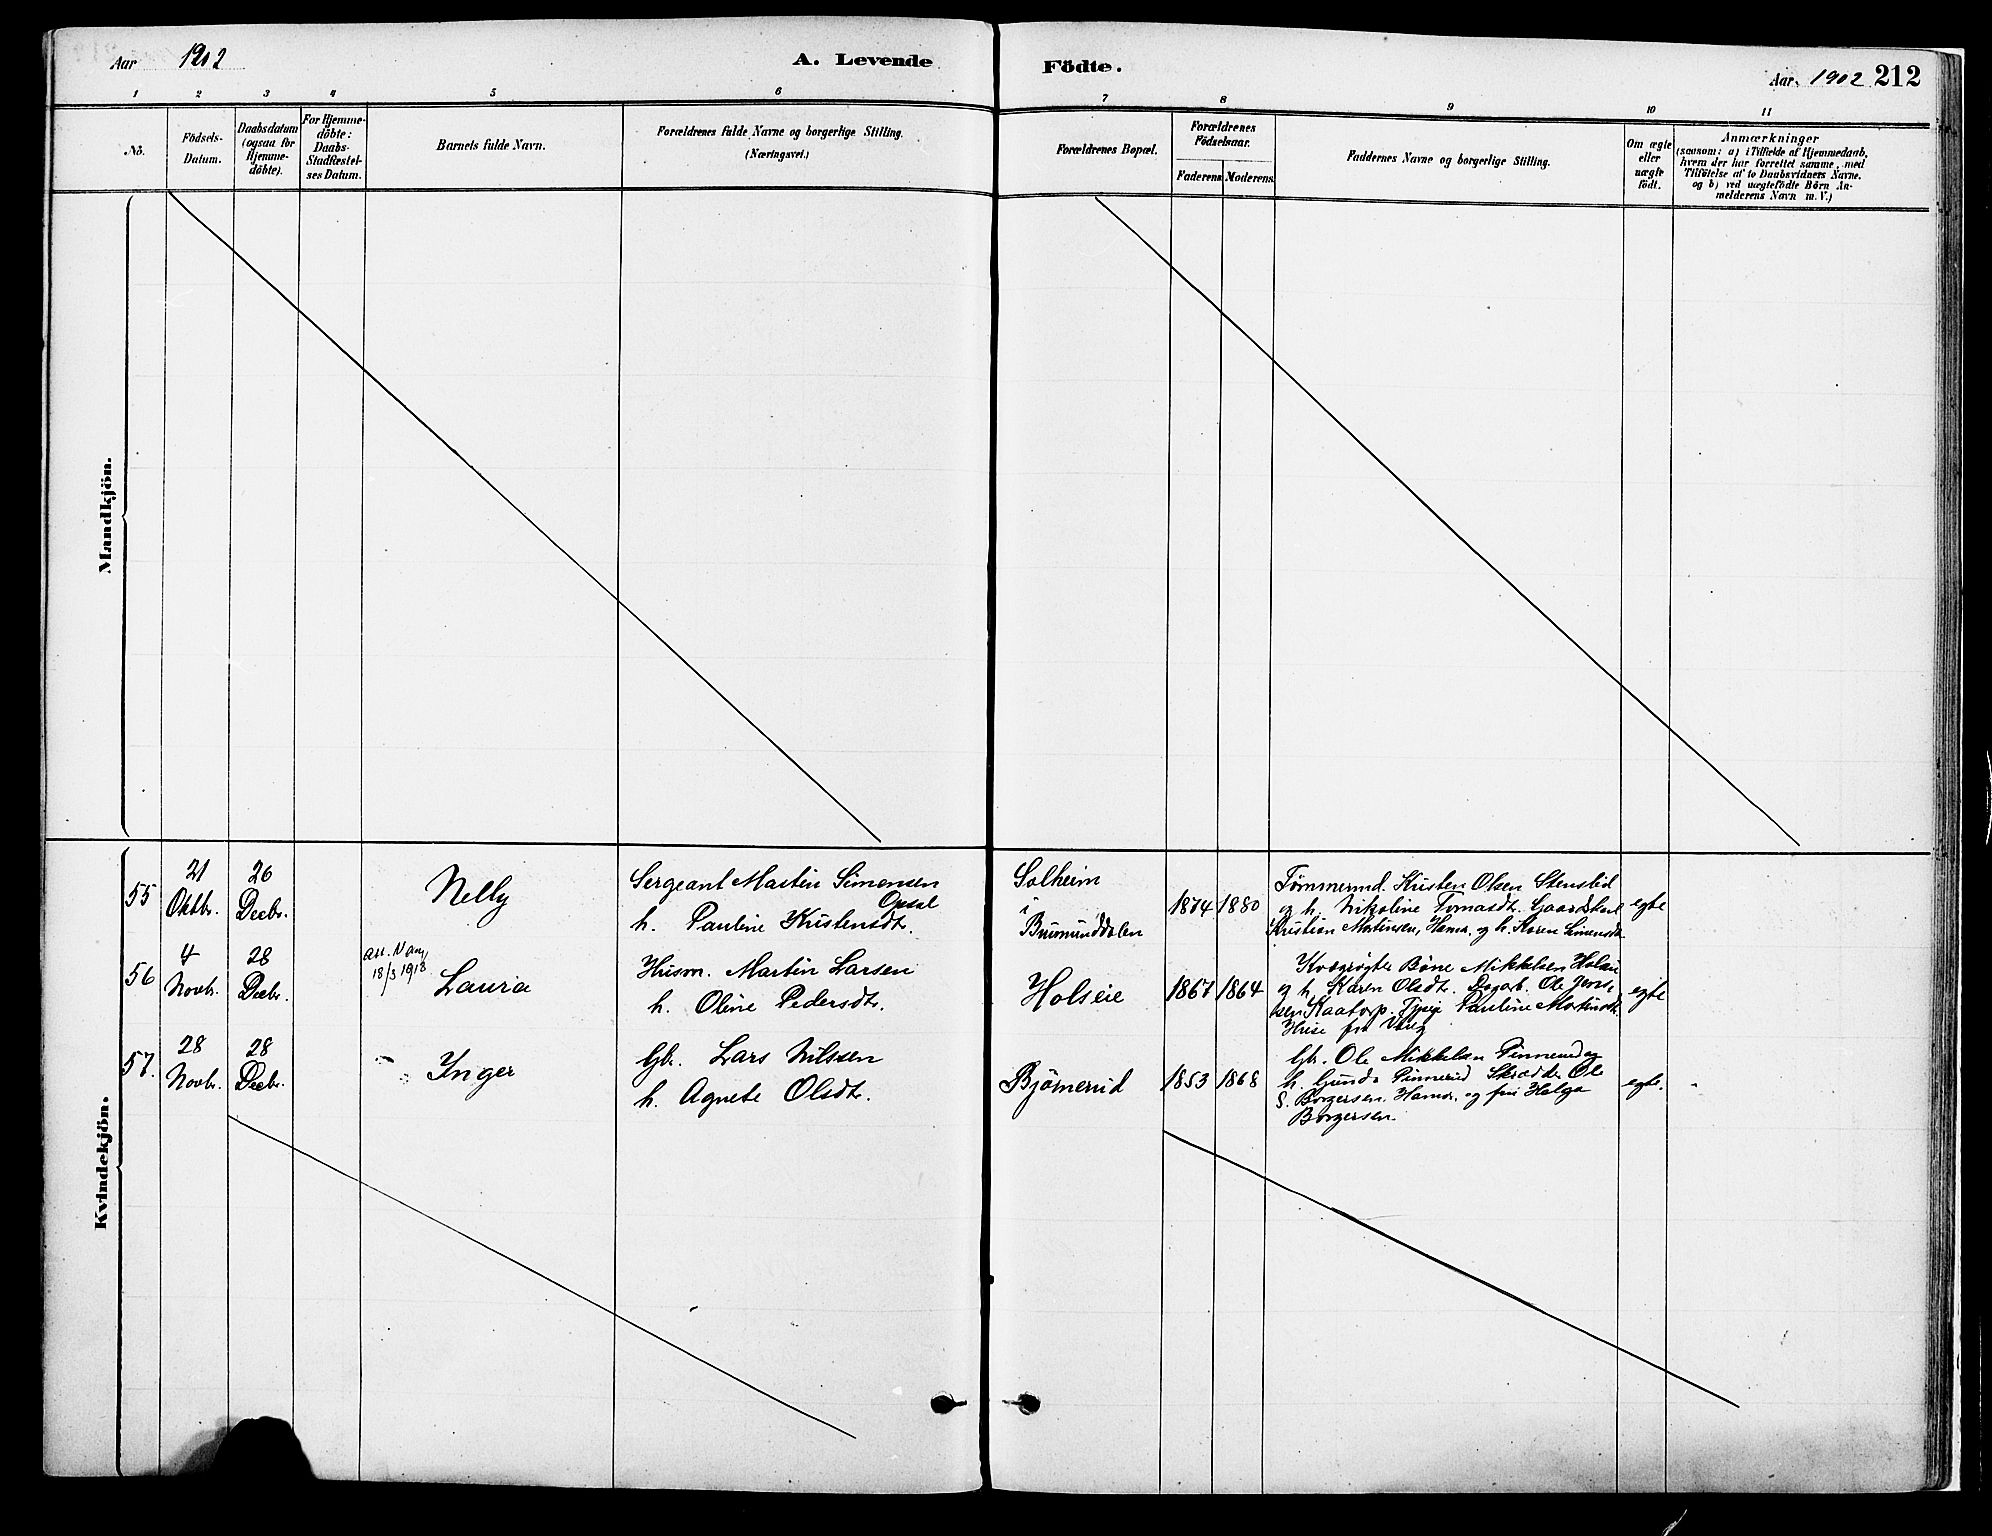 Aar 1902
A. Levende Födte.
Aar 1902 212
1 2 3 4 5 6 7 8 9 10 11
No.
Födsels-
Datum.
Daabsdatum
(ogsaa for
Hjemme-
döbte).
For Hjemme-
döbte:
Daabs-
Stadfæstel-
ses Datum.
Barnets fulde Navn.
Forældrenes fulde Navne og borgerlige Stilling.
(Næringsvei.)
Forældrenes Bopæl.
Forældrenes
Födselsaar.
Faderens Moderens
Faddernes Navne og borgerlige Stilling.
Om ægte
eller
uægte
födt.
Anmærkninger
(saasom: a) i Tilfælde af Hjemmedaab,
hvem der har forrettet samme, med
Tilföielse af to Daabsvidners Navne.
og b) ved uægtefödte Börn An-
melderens Navn m. V.)
Mandkjön.
Kvindekjön.
55
21
Oktbr.
26
Decbr.
Nelly
Sergeant Martin Simensen
Opsal
h. Pauline Kristensdt.
Solheim
i
Brumunddalen
1874 1880
Tømmermd. Kristen Olsen Stenslid
og h. Nikoline Tomasdt. Gaardskarl
Kristian Mortinsen, Hamar, og h. Karen Simensdt.
egte
56
4
Novbr.
28
Decbr.
18/3 1918
Laura
Husm. Martin Larsen
h. Oline Pedersdt.
Holseie
1867 1864
Mikkelsen Holseie
og h. Karen Olsdt. Dagarb. Ole Jens-
sen Kaatorp. Pauline Martinsdt.
fra Vang
egte
57.
28
Novbr.
28
Decbr.
Inger
Gbr. Lars Nilssen
h. Agnete Olsdt.
Bjørnerud
1853 1868
Gbr. Ole Mikkelsen Finnerud og
h. Gunda Finnerud Skrædder Ole
S. Borgersen. Hamar. og fru Helga
Borgersen.
egte.